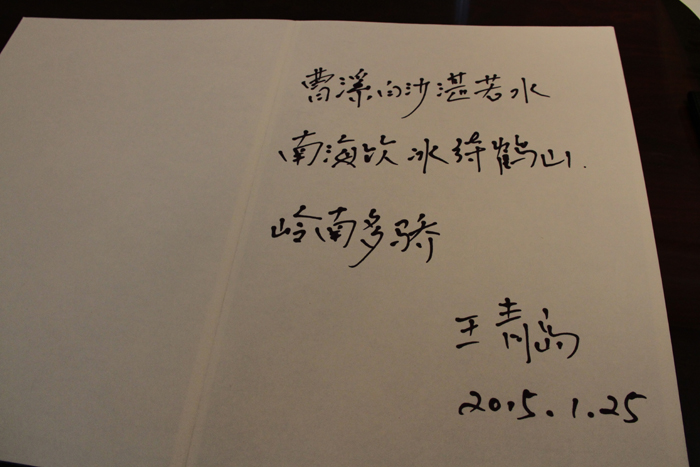 曹溪白沙湛若水
南海饮冰待鹤山.
岭南多骄
王青
2015.1.25